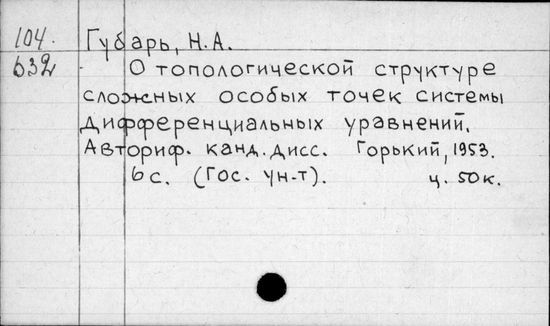 104. Губарь, Н.А.
632 О топологической структуре
сложных особых точек системы
дифференциальных уравнений.
Авториф. канд. дисс. Горький, 1953.
6 с. (Гос. ун-т). ц. 50 к.